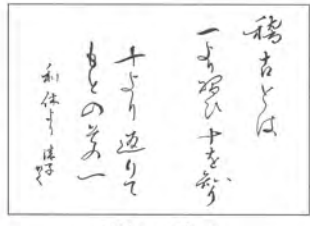 稽古とは
一より習ひ十を知り
十より返りて
もとの其一
利休より